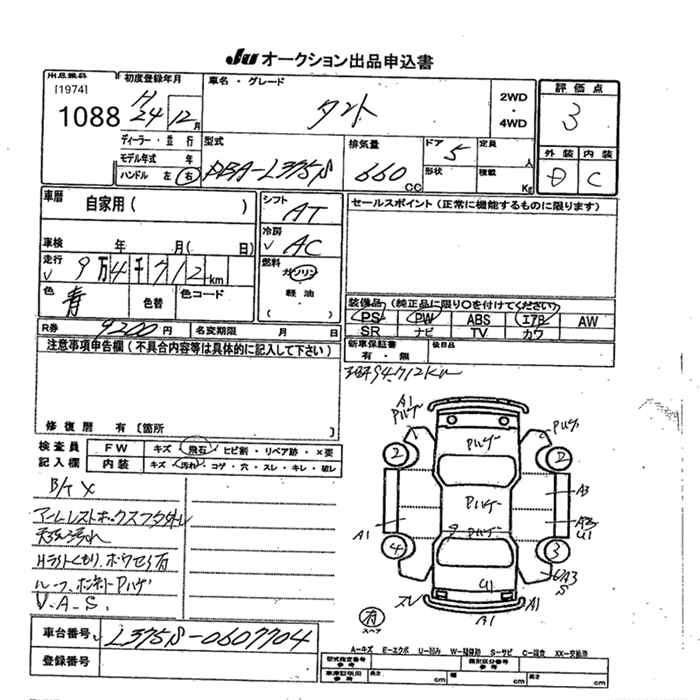 JU オークション出品申込書
出品番号
[1974]
1088
初度登録年月
H 24年 12月
車名・グレード
タント
2WD
・
4WD
評価点
3
ディーラー・並行
モデル年式 年
ハンドル 左 右
型式
DBA-L375S
排気量
660 CC
ドア 5
形状
定員 人
積載 Kg
外装 内装
D C
車歴
自家用( )
シフト
AT
冷房
AC
セールスポイント(正常に機能するものに限ります)
車検 年 月( 日)
走行 9万4千712km
燃料
ガソリン
軽油
( )
色 青
色替
色コード
装備品(純正品に限り○を付けてください)
PS PW ABS エアB AW
SR ナビ TV カワ
R券 9200円
名変期限 月 日
新車保証書
有・無
後日品
注意事項申告欄(不具合内容等は具体的に記入して下さい)
修復歴 有〔箇所 〕
94,712Km
検査員
記入欄
FW キズ・飛石・ヒビ割・リペア跡・×要
内装 キズ・汚れ・コゲ・穴・スレ・キレ・破レ
B/T X
アームレストボックスフタ外レ
天張汚れ
Hライトくもり、ホウセキ有
ルーフ、ボンネットPハゲ
V.A.S.
A1
Pハゲ
Pハゲ
Pハゲ
2
2
Pハゲ
A3
A1
Pハゲ
A3
U1
4
3
U1
UA3
S
スレ
A1
B1
有
スペア
車台番号 L375S-0607704
登録番号
A-キズ E-エクボ U-凹み W-補修跡 S-サビ C-腐食 XX-交換済
型式指定番号
参考
類別区分番号
参考
車庫証明(用)
参考
長さ cm
幅 cm
高さ cm